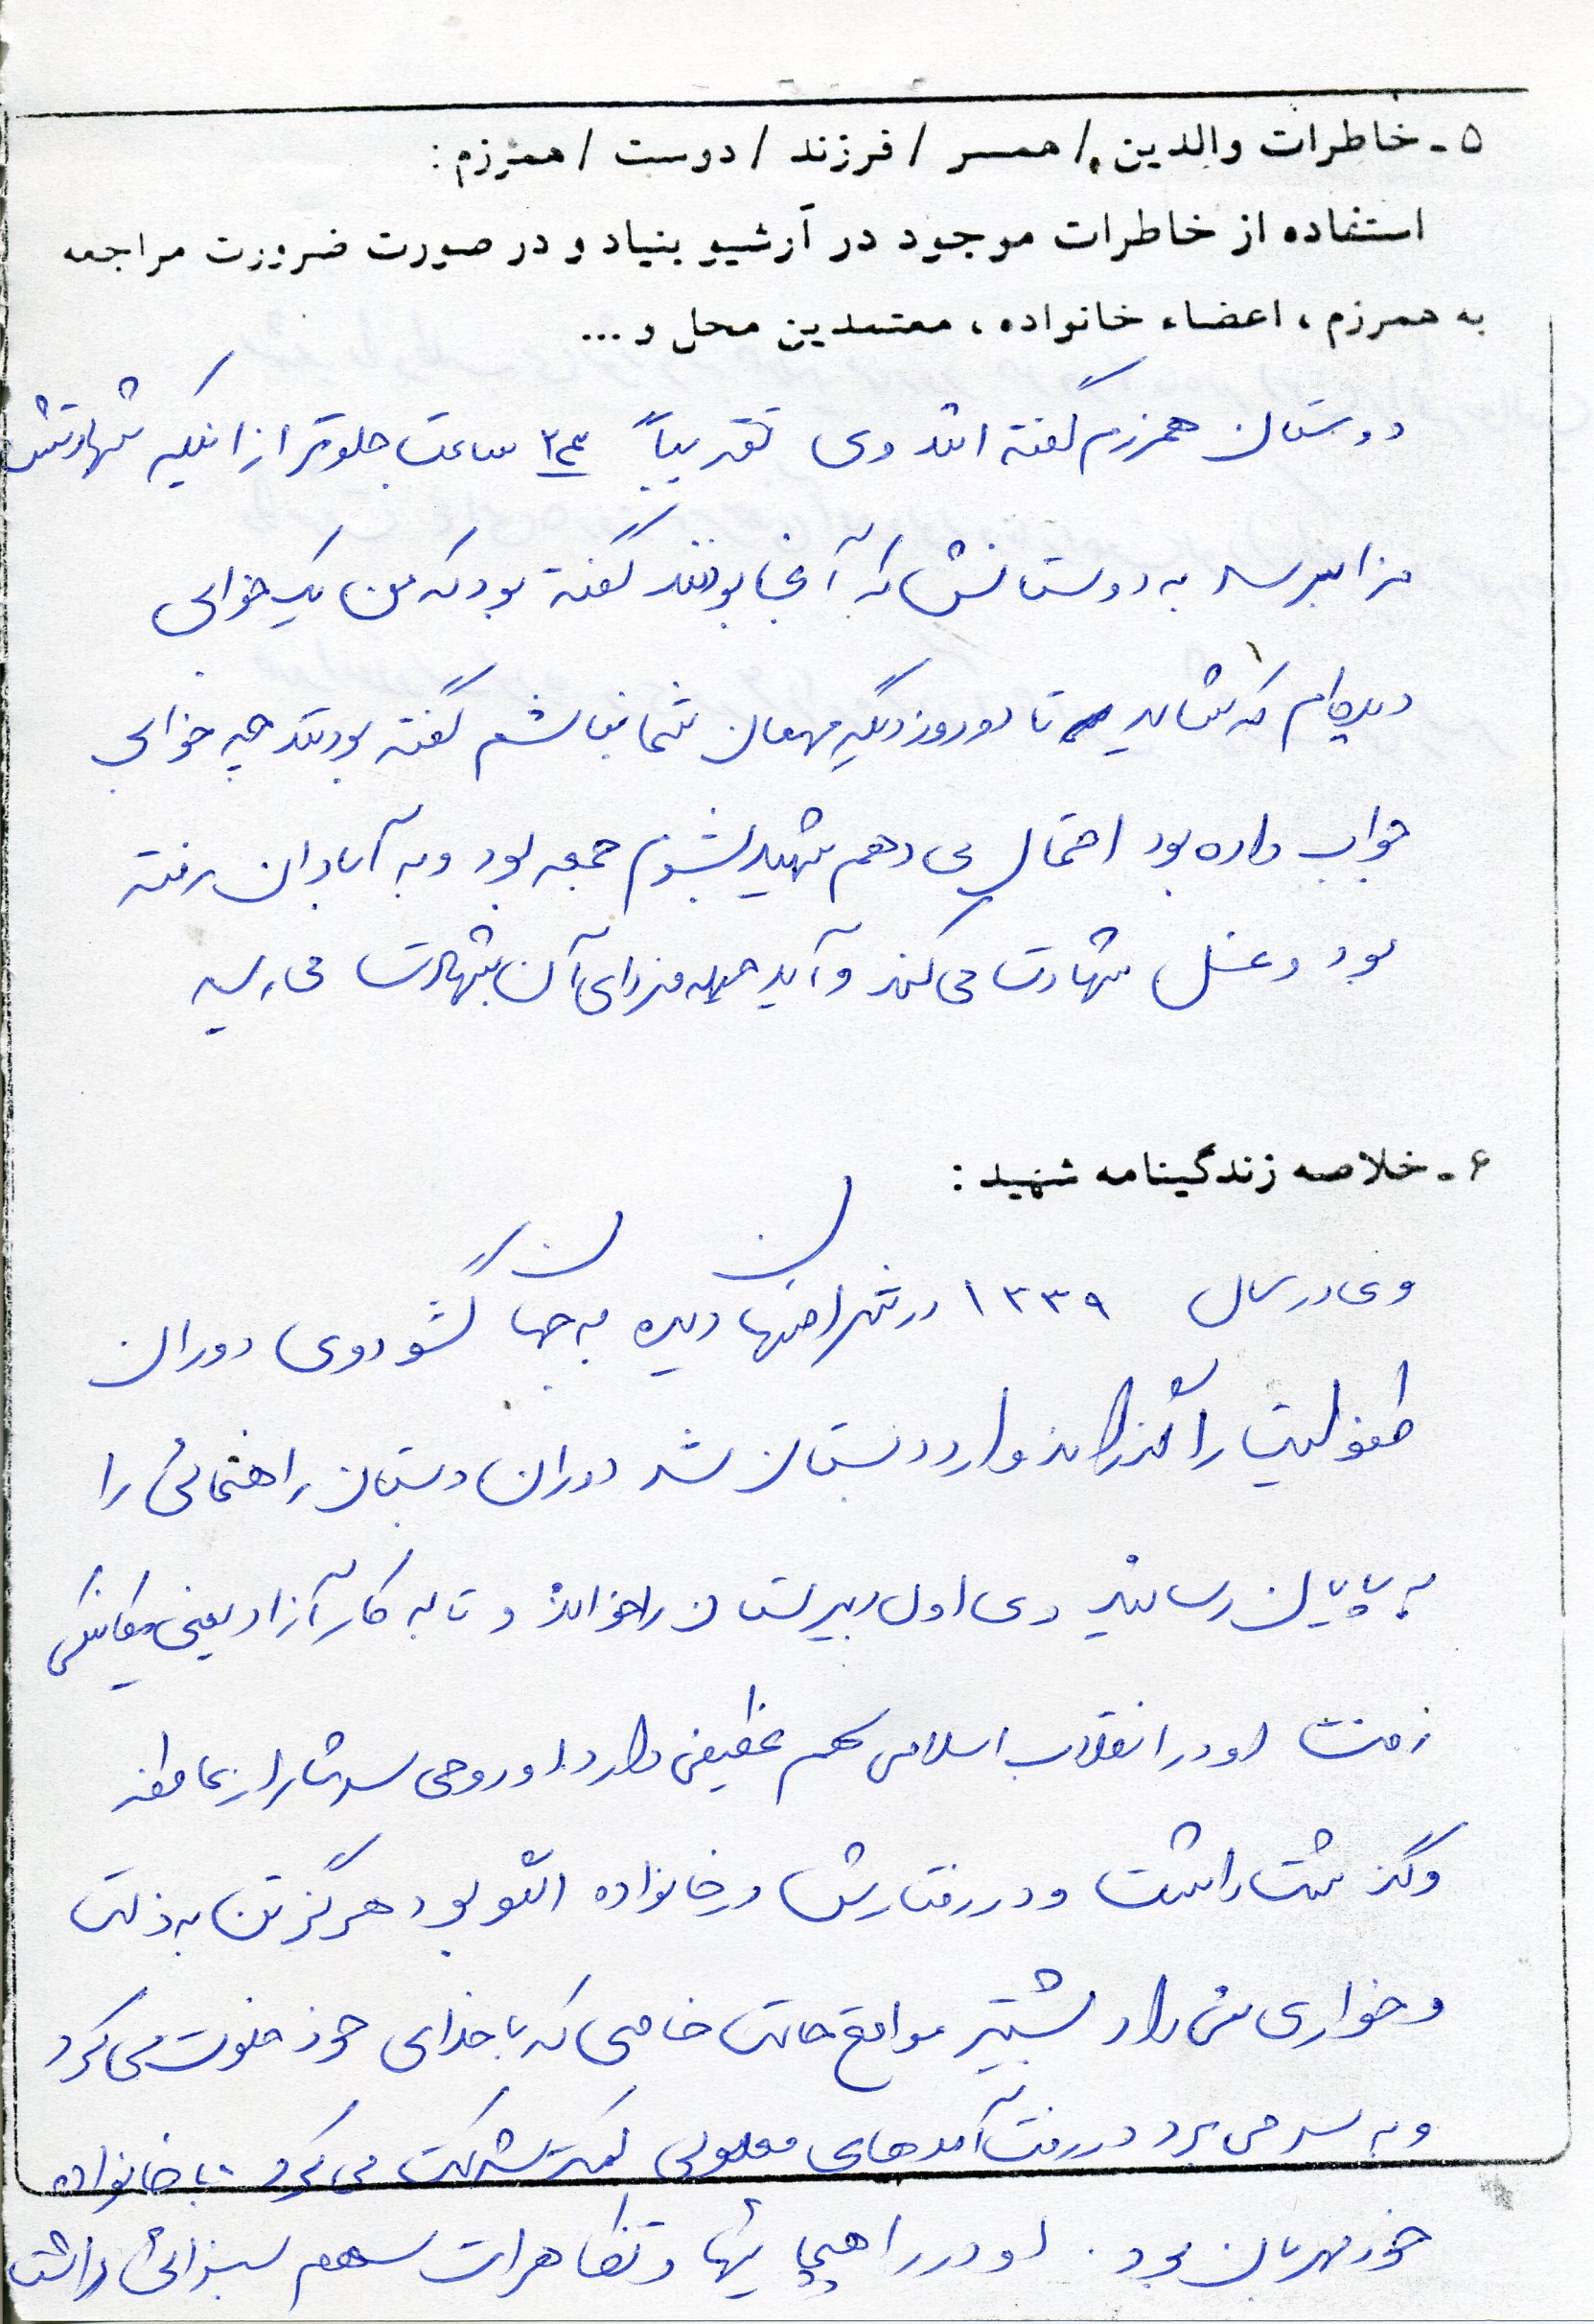 ۵ - خاطرات والدین / همسر / فرزند / دوست / همرزم :
استفاده از خاطرات موجود در آرشیو بنیاد و در صورت ضرورت مراجعه
به همرزم ، اعضاء خانواده ، معتمدین محل و ...
دوستان همرزم گفته اند وی تقریباً ساعت جلوتر از اینکه شهادتش
فرا برسد به دوستانش که آنجا بودند گفته بود که من یک خوابی
دیده‌ام که شاید تا دو روز دیگر مهمان شما نباشم گفته بودند چه خوابی
جواب داده بود احتمال می دهم شهید بشوم جمعه بود و به آبادان رفته
بود و غسل شهادت می کند و آید جبهه فردای آن بشهادت می رسد
۶ - خلاصه زندگینامه شهید :
وی در سال ۱۳۳۹ در شهر اصفهان دیده به جهان گشود وی دوران
طفولیت را گذراند وارد دبستان شد دوران دبستان راهنمائی را
به پایان رسانید وی اول دبیرستان را خواند و تا به کار آزاد یعنی مکانیکی
رفت او در انقلاب اسلامی سهم عظیمی دارد او روحی سرشار از عاطفه
و گذشت داشت و در رفتارش در خانواده الگو بود هرگز تن به ذلت
و خواری نمی داد بیشتر مواقع حالت خاصی که با خدای خود خلوت می کرد
و به سر می برد در رفت آمدهای معمولی کمتر شرکت می کرد . با خانواده
خود مهربان بود . او در راهپیمائیها و تظاهرات سهم بسزائی داشت